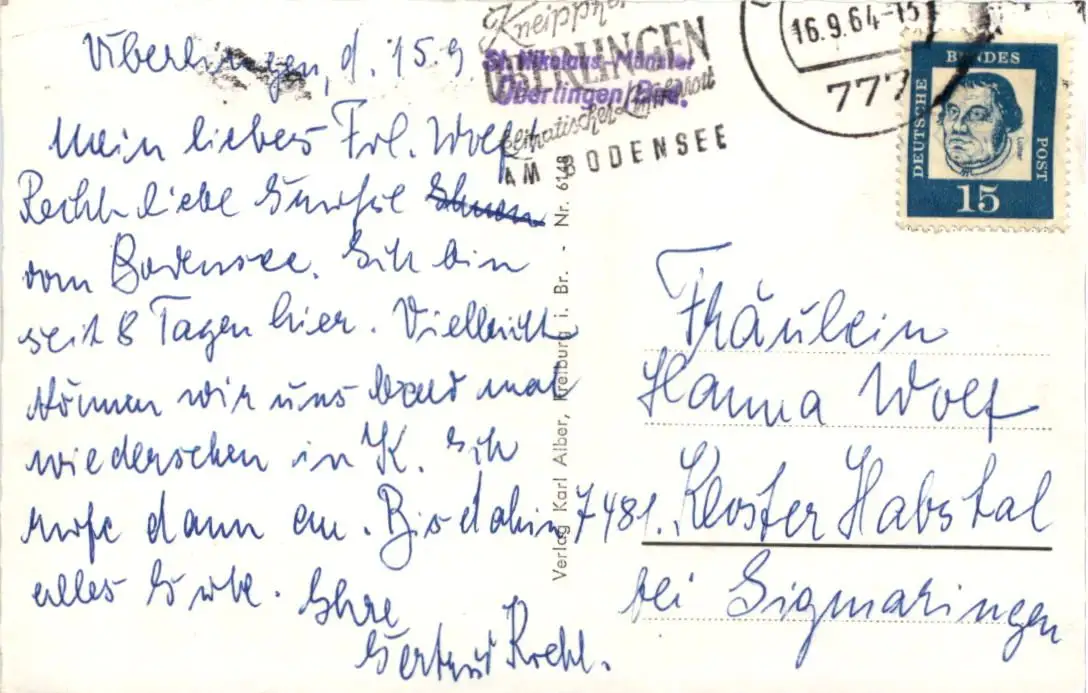 Überlingen, d. 15.9
Mein liebes Frl. Wolf
Recht liebe Grüße Ihnen
vom Bodensee. Ich bin
seit 8 Tagen hier. Vielleicht
können wir uns bald mal
wiedersehen in K. Ich
rufe dann an. Bis dahin
alles Gute. Ihre
Gertrud Krehl.
Kneipp
ÜBERLINGEN
St. Nikolaus-Münster
Überlingen/Bod.
AM BODENSEE
16.9.64-15
777
DEUTSCHE BUNDESPOST
Luther
15
Verlag Karl Alber, Freiburg i. Br. - Nr. 6148
Fräulein
Hanna Wolf
7481. Kloster Habstal
bei Sigmaringen